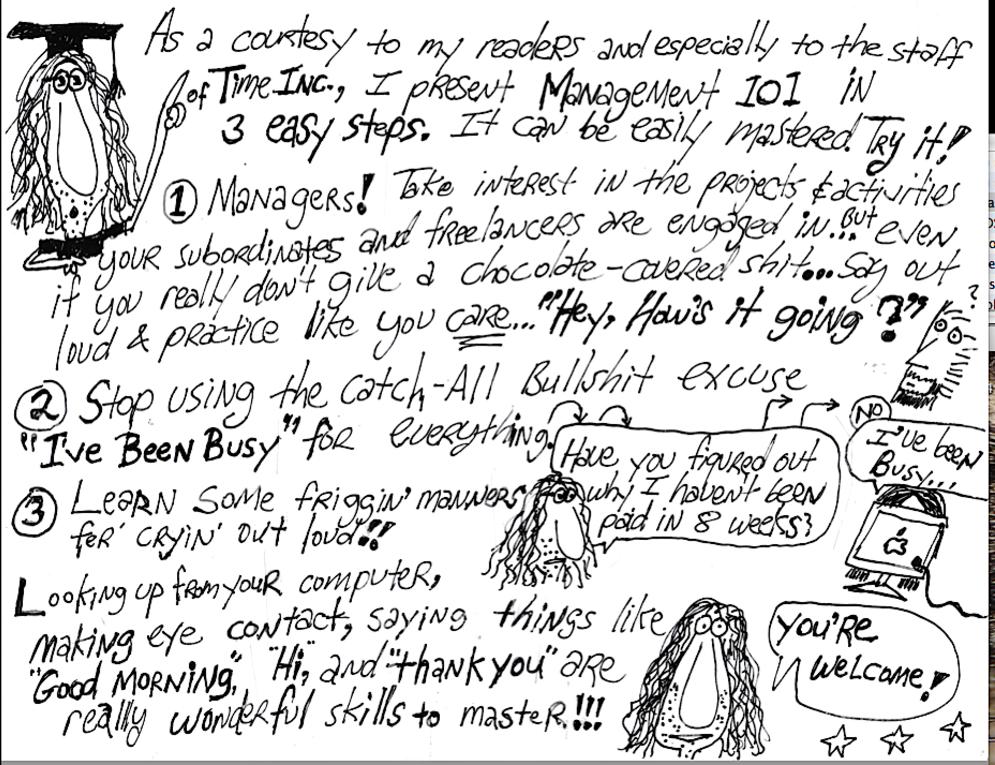 As a courtesy to my readers and especially to the staff
of Time Inc., I present Management 101 in
3 easy steps. It can be easily mastered. Try it!
1 Managers! Take interest in the projects & activities
your subordinates and freelancers are engaged in... But even
if you really don't give a chocolate-covered shit... say out
loud & practice like you care... "Hey, How's it going?"
?
2 Stop using the catch-All Bullshit excuse
"I've Been Busy" for everything.
Have you figured out
why I haven't been
paid in 8 weeks?
NO
I've been
Busy...
3 Learn some friggin' manners
fer' cryin' out loud!!
Looking up from your computer,
making eye contact, saying things like
"Good Morning," "Hi," and "thank you" are
really wonderful skills to master!!!
You're
welcome!